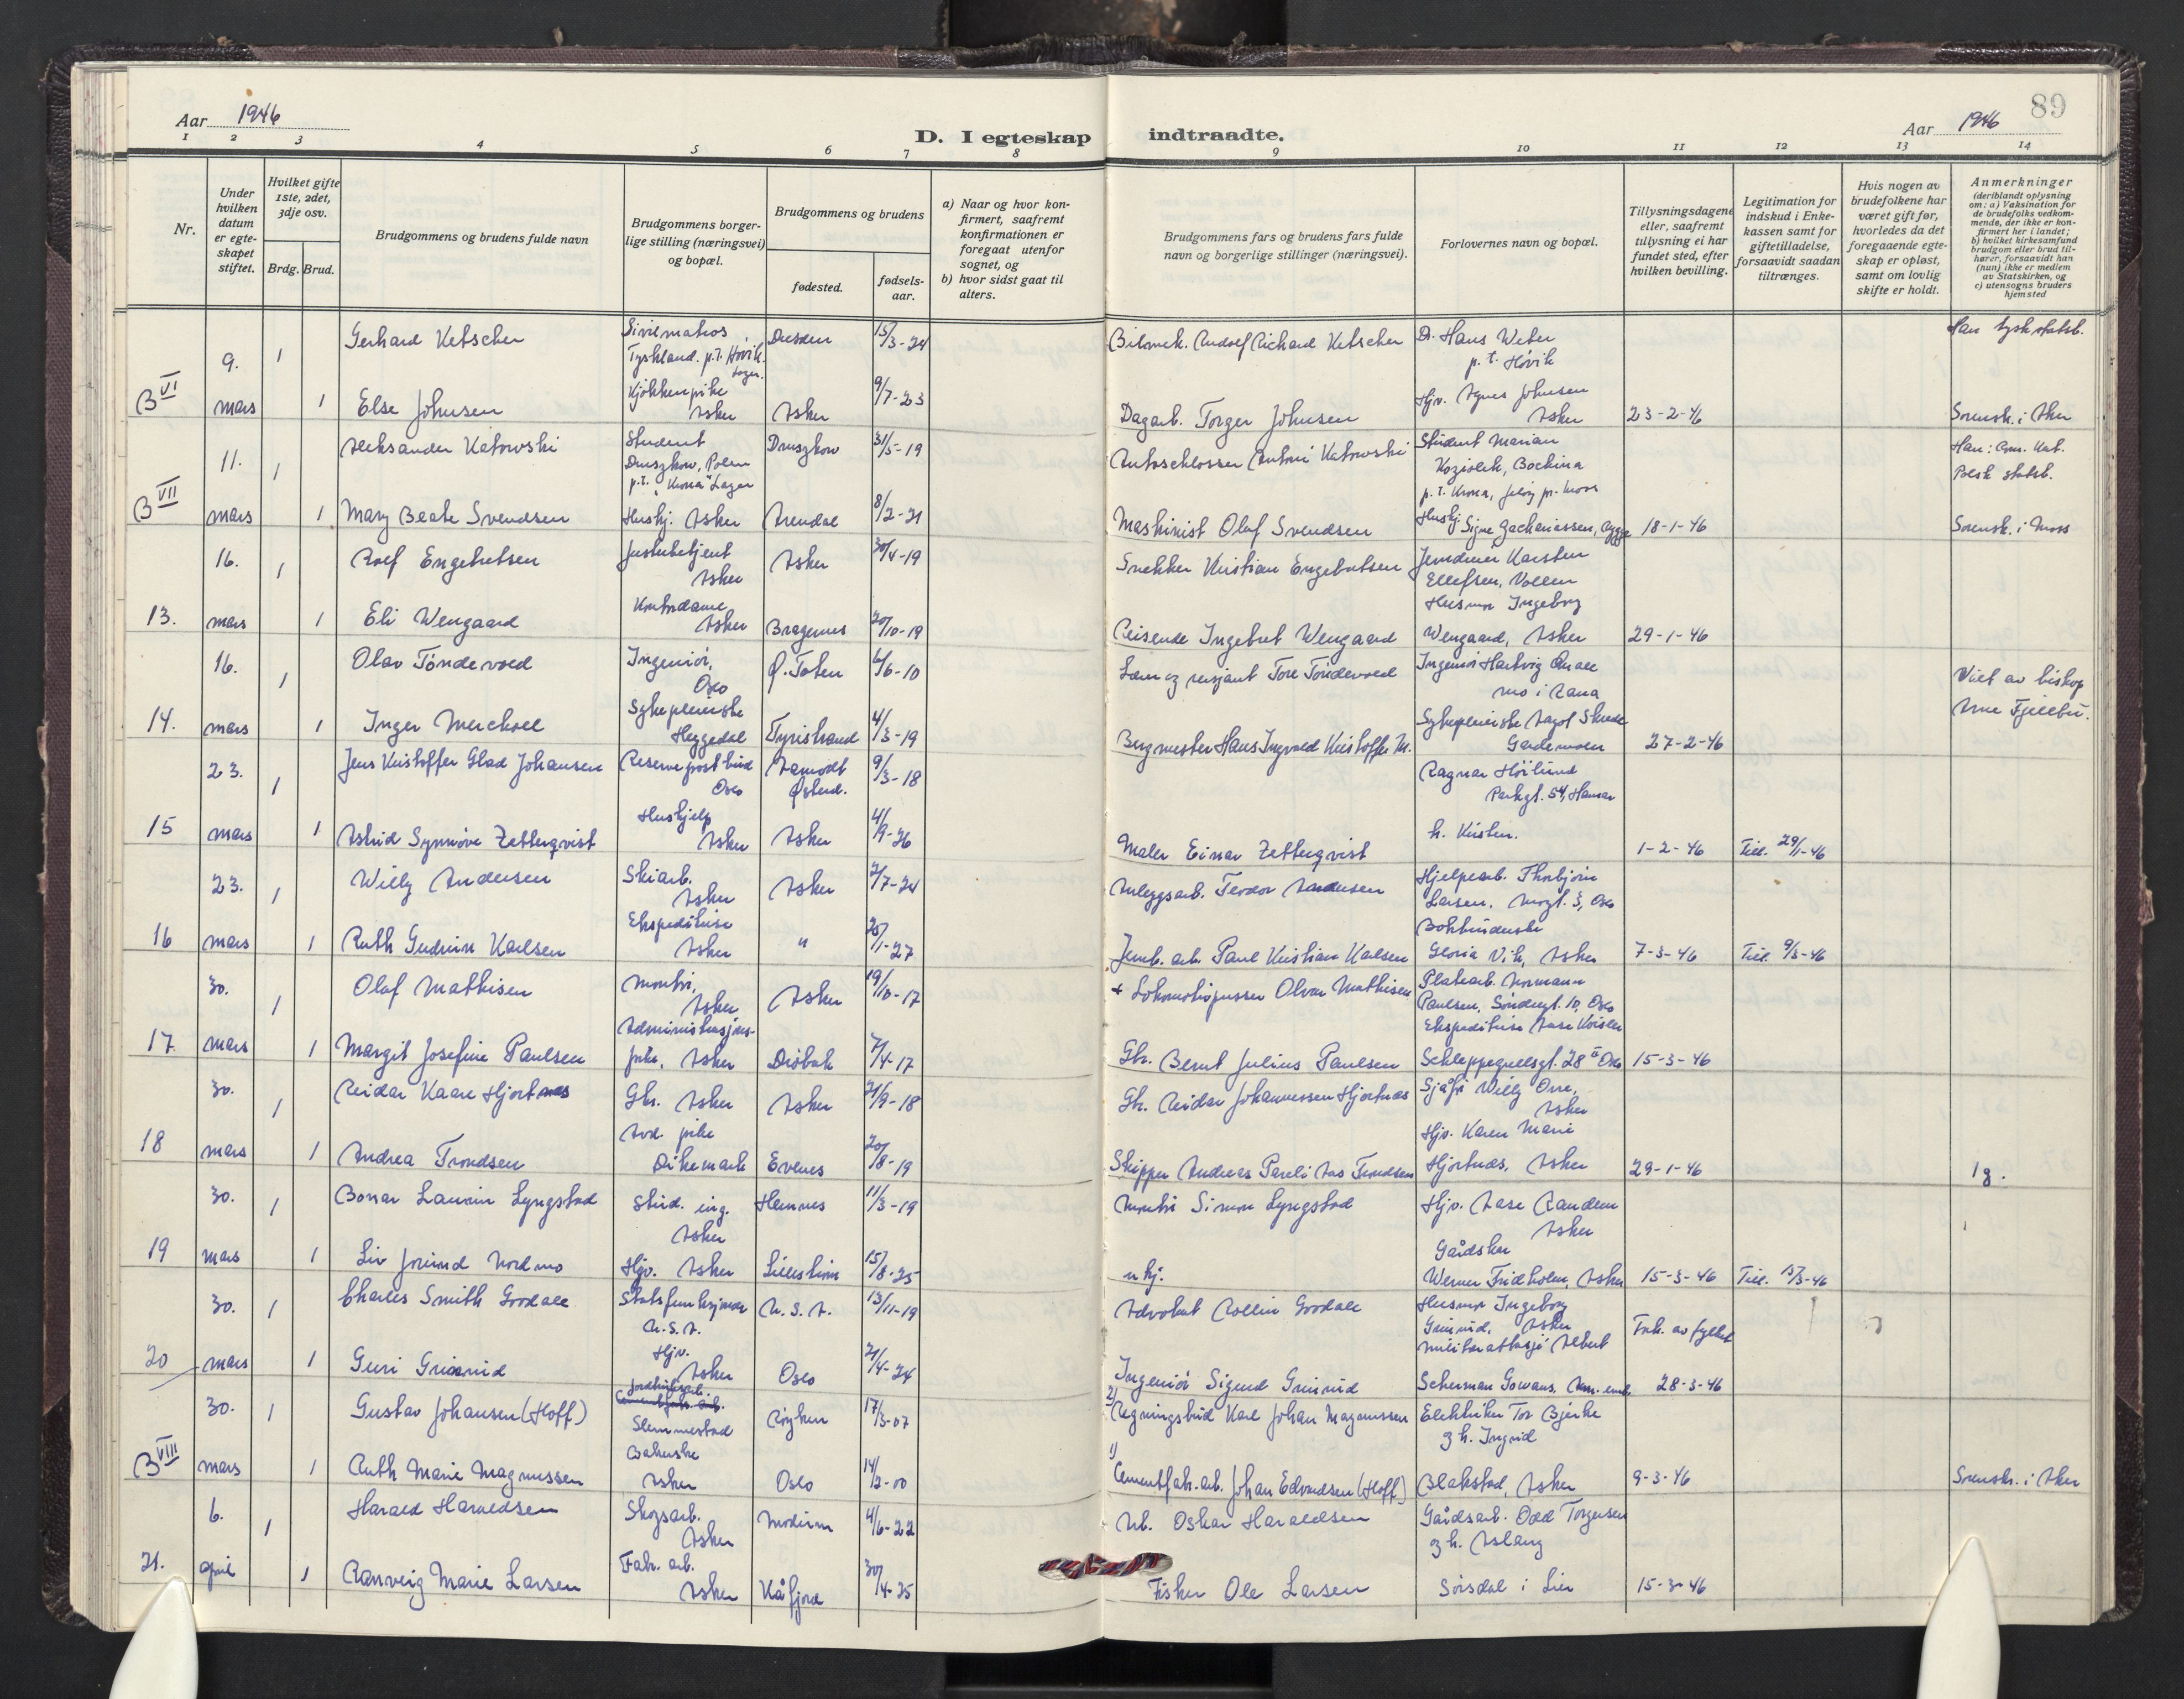 Aar 1946
D. I egteskap indtraadte.
Aar 1946
89
1 2 3 4 5 6 7 8 9 10 11 12 13 14
Nr.
Under hvilken datum er egteskapet stiftet.
Hvilket gifte 1ste, 2det, 3dje osv.
Brdg. Brud.
Brudgommens og brudens fulde navn
Brudgommens borgerlige stilling (næringsvei) og bopæl.
Brudgommens og brudens
fødested.
fødselsaar.
a) Naar og hvor konfirmert, saafremt konfirmationen er foregaat utenfor sognet, og
b) hvor sidst gaat til alters.
Brudgommens fars og brudens fars fulde navn og borgerlige stillinger (næringsvei).
Forlovernes navn og bopæl.
Tillysningsdagene eller, saafremt tillysning ei har fundet sted, efter hvilken bevilling.
Legitimation for indskud i Enkekassen samt for giftetilladelse, forsaavidt saadan tiltrænges.
Hvis nogen av brudefolkene har været gift før, hvorledes da det foregaaende egteskap er opløst, samt om lovlig skifte er holdt.
Anmerkninger
(deriblandt oplysning om: a) Vaksination for de brudefolks vedkommende, der ikke er konfirmert her i landet; b) hvilket kirkesamfund brudgom eller brud tilhører, forsaavidt han (hun) ikke er medlem av Statskirken, og c) utensogns bruders hjemsted
9. 1 Gerhard Ketscher Sivilmatros Tyskland. p.t. Høvik Lager. Dresden 15/3-24 Bilmek. Rudolf Richard Ketscher Dr. Hans Weber p.t. Høvik Han tysk statsb.
B VI mars 1 Else Johnsen Kjøkkenpike Asker Asker 9/7-23 Dagarb. Torger Johnsen Hjv. Agnes Johnsen Asker 23-2-46 Sorensk. i Aker
11. 1 Aleksander Katowski Student Druszkow, Polen p.t. "Krona" Lager Druszkow 31/5-19 Autoschlosser Antoni Katowski Student Marian Koziolek, Bochina p.t. Krona, Jeløy pr. Moss Han: Rom. Kat. Polsk statsb.
B VII mars 1 Mary Beate Svendsen Hushj. Asker Arendal 8/2-21 Maskinist Olaf Svendsen Hushj. Signe Zachariassen, Rygge 18-1-46 Sorensk. i Moss
16. 1 Rolf Engebretsen Asker Asker 30/4-19 Snekker Kristian Engebretsen Karsten Ellefsen, Vollen
13. mars 1 Eli Wengaard Kontordame Asker Bragernes 20/10-19 Reisende Ingebret Wengaard Husmor Ingeborg Wengaard, Asker 29-1-46
16. 1 Olav Tøndevold Ingeniør, Oslo Ø. Toten 6/6-10 Lærer og Tore Tøndevold Ingeniør Hartvig Quale Mo i Rana Viet av biskop Arne Fjellbu.
14. mars 1 Inger Merckoll Sykepleierske Heggedal Tyristrand 4/3-19 Bergmester Hans Ingvald Kristoffer M. Sykepleierske Gardemoen 27-2-46
23. 1 Jens Kristoffer Glad Johansen Reserve postbud Oslo Aamodt Østerd. 9/3-18 Ragnar Høilund Parkgt. 54, Hamar
15 mars 1 Astrid Synnøve Zetterqvist Hushjelp Asker Asker 4/9-26 Maler Einar Zetterqvist h. Kirsten. 1-2-46 Till. 29/1-46
23. 1 Willy Andersen Skiarb. Asker Asker 2/7-24 Anleggsarb. Teodor Andersen Hjelpearb. Thorbjørn Larsen, Oslo
16 mars 1 Ruth Gudrun Karlsen Ekspeditrise Asker " 25/1-27 Jernb. arb. Paul Kristian Karlsen Bokbinderske Gloria Vik, Asker 7-3-46 Till. 9/3-46
30. 1 Olaf Mathisen Montør, Asker Asker 19/10-17 + Lokomotivpusser Olvar Mathisen Platearb. Normann Paulsen, Søndregt. 10, Oslo
17 mars 1 Margit Josefine Paulsen Administrasjonspike, Asker Drøbak 7/4-17 Gbr. Bernt Julius Paulsen Ekspeditrise Aase Schleppegrellsgt. 28 Oslo 15-3-46
30. 1 Reidar Kaare Hjortnæs Gbr. Asker Asker 21/9-18 Gbr. Reidar Johannessen Hjortnæs Sjåfør Willy Orre, Asker
18 mars 1 Andrea Trondsen Avd. pike Dikemark Evenes 20/8-19 Skipper Andreas Pareli Aas Trondsen Hjv. Karen Marie Hjortnæs, Asker 29-1-46 18.
30. 1 Bonar Laurin Lyngstad Stud. ing. Asker Hemnes 11/3-19 Montør Simon Lyngstad Hjv. Aase Randem Asker
19 mars 1 Liv Jorund Nordmo Hjv. Asker Lillestrøm 15/8-25 ukj. Gårdsker Werner Fridholm, Asker 15-3-46 Till. 15/3-46
30. 1 Charles Smith Goodale Statsfunksjonær U.S.A. U.S.A. 13/11-19 Advokat Rollin Goodale Husmor Ingeborg Grimnid, Asker Frit. av fylket
20 mars 1 Guri Grimnid Hjv. Asker Oslo 21/4-24 Ingeniør Sigurd Grimnid Militærattasjé Albert Scherman Gowans, Am. emb. 28-3-46
30. 1 Gustav Johansen (Hoff) Slemmestad Røyken 17/3-07 2) Regningsbud Karl Johan Magnussen Elektriker Tor Bjerke
B VIII mars 1 Ruth Marie Magnussen Bakerske Asker Oslo 14/2-00 1) Cementfabr.arb. Johan Edvardsen (Hoff) og h. Ingrid Blakstad, Asker 9-3-46 Sorensk. i Aker
6. 1 Harald Haraldsen Skogsarb. Asker Modum 4/6-22 Arb. Oskar Haraldsen Gårdsarb. Odd Torgersen
21. april 1 Ranveig Marie Larsen Fabr. arb. Asker Kåfjord 30/4-25 Fisker Ole Larsen og h. Aslaug Sørsdal i Lier 15-3-46